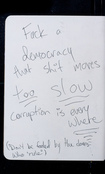 Fuck a
democracy
that shit moves
too slow
corruption is every
where
(Don't be fooled by the ones
who "rule")